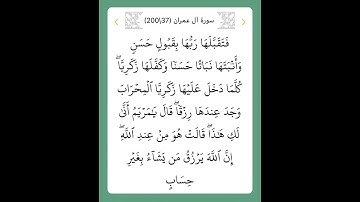 سورة آل عمران (37\200)
فَتَقَبَّلَهَا رَبُّهَا بِقَبُولٍ حَسَنٍ
وَأَنۢبَتَهَا نَبَاتًا حَسَنًا وَكَفَّلَهَا زَكَرِيَّاۖ
كُلَّمَا دَخَلَ عَلَيْهَا زَكَرِيَّا ٱلْمِحْرَابَ
وَجَدَ عِندَهَا رِزْقًاۖ قَالَ يَٰمَرْيَمُ أَنَّىٰ
لَكِ هَٰذَاۖ قَالَتْ هُوَ مِنْ عِندِ ٱللَّهِۖ
إِنَّ ٱللَّهَ يَرْزُقُ مَن يَشَآءُ بِغَيْرِ
حِسَابٍ